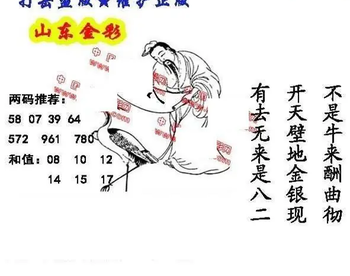 山东金彩
两码推荐:
58 07 39 64
572 961 780
和值: 08 10 12
14 15 17
不是牛来酬曲彻
开天壁地金银现
有去无来是八二